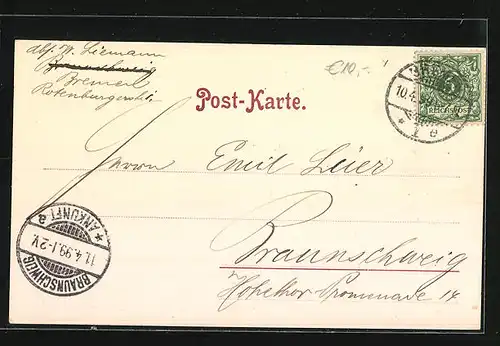 Abs. W. Siemann
Braunschweig
Bremen
Rotenburgerstr.
€10,-
Post-Karte.
5
REICHSPOST
10.4.99
Herrn Emil Leier
Braunschweig
Hohethor Promenade 14
BRAUNSCHWEIG
11.4.99.1-2V.
* ANKUNFT e